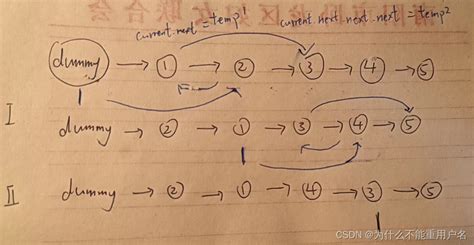 current.next = temp1 current.next.next.next = temp2
dummy → ① → ② → ③ → ④ → ⑤
I dummy → ② → ① → ③ → ④ → ⑤
II dummy → ② → ① → ④ → ③ → ⑤
CSDN @为什么不能重用户名